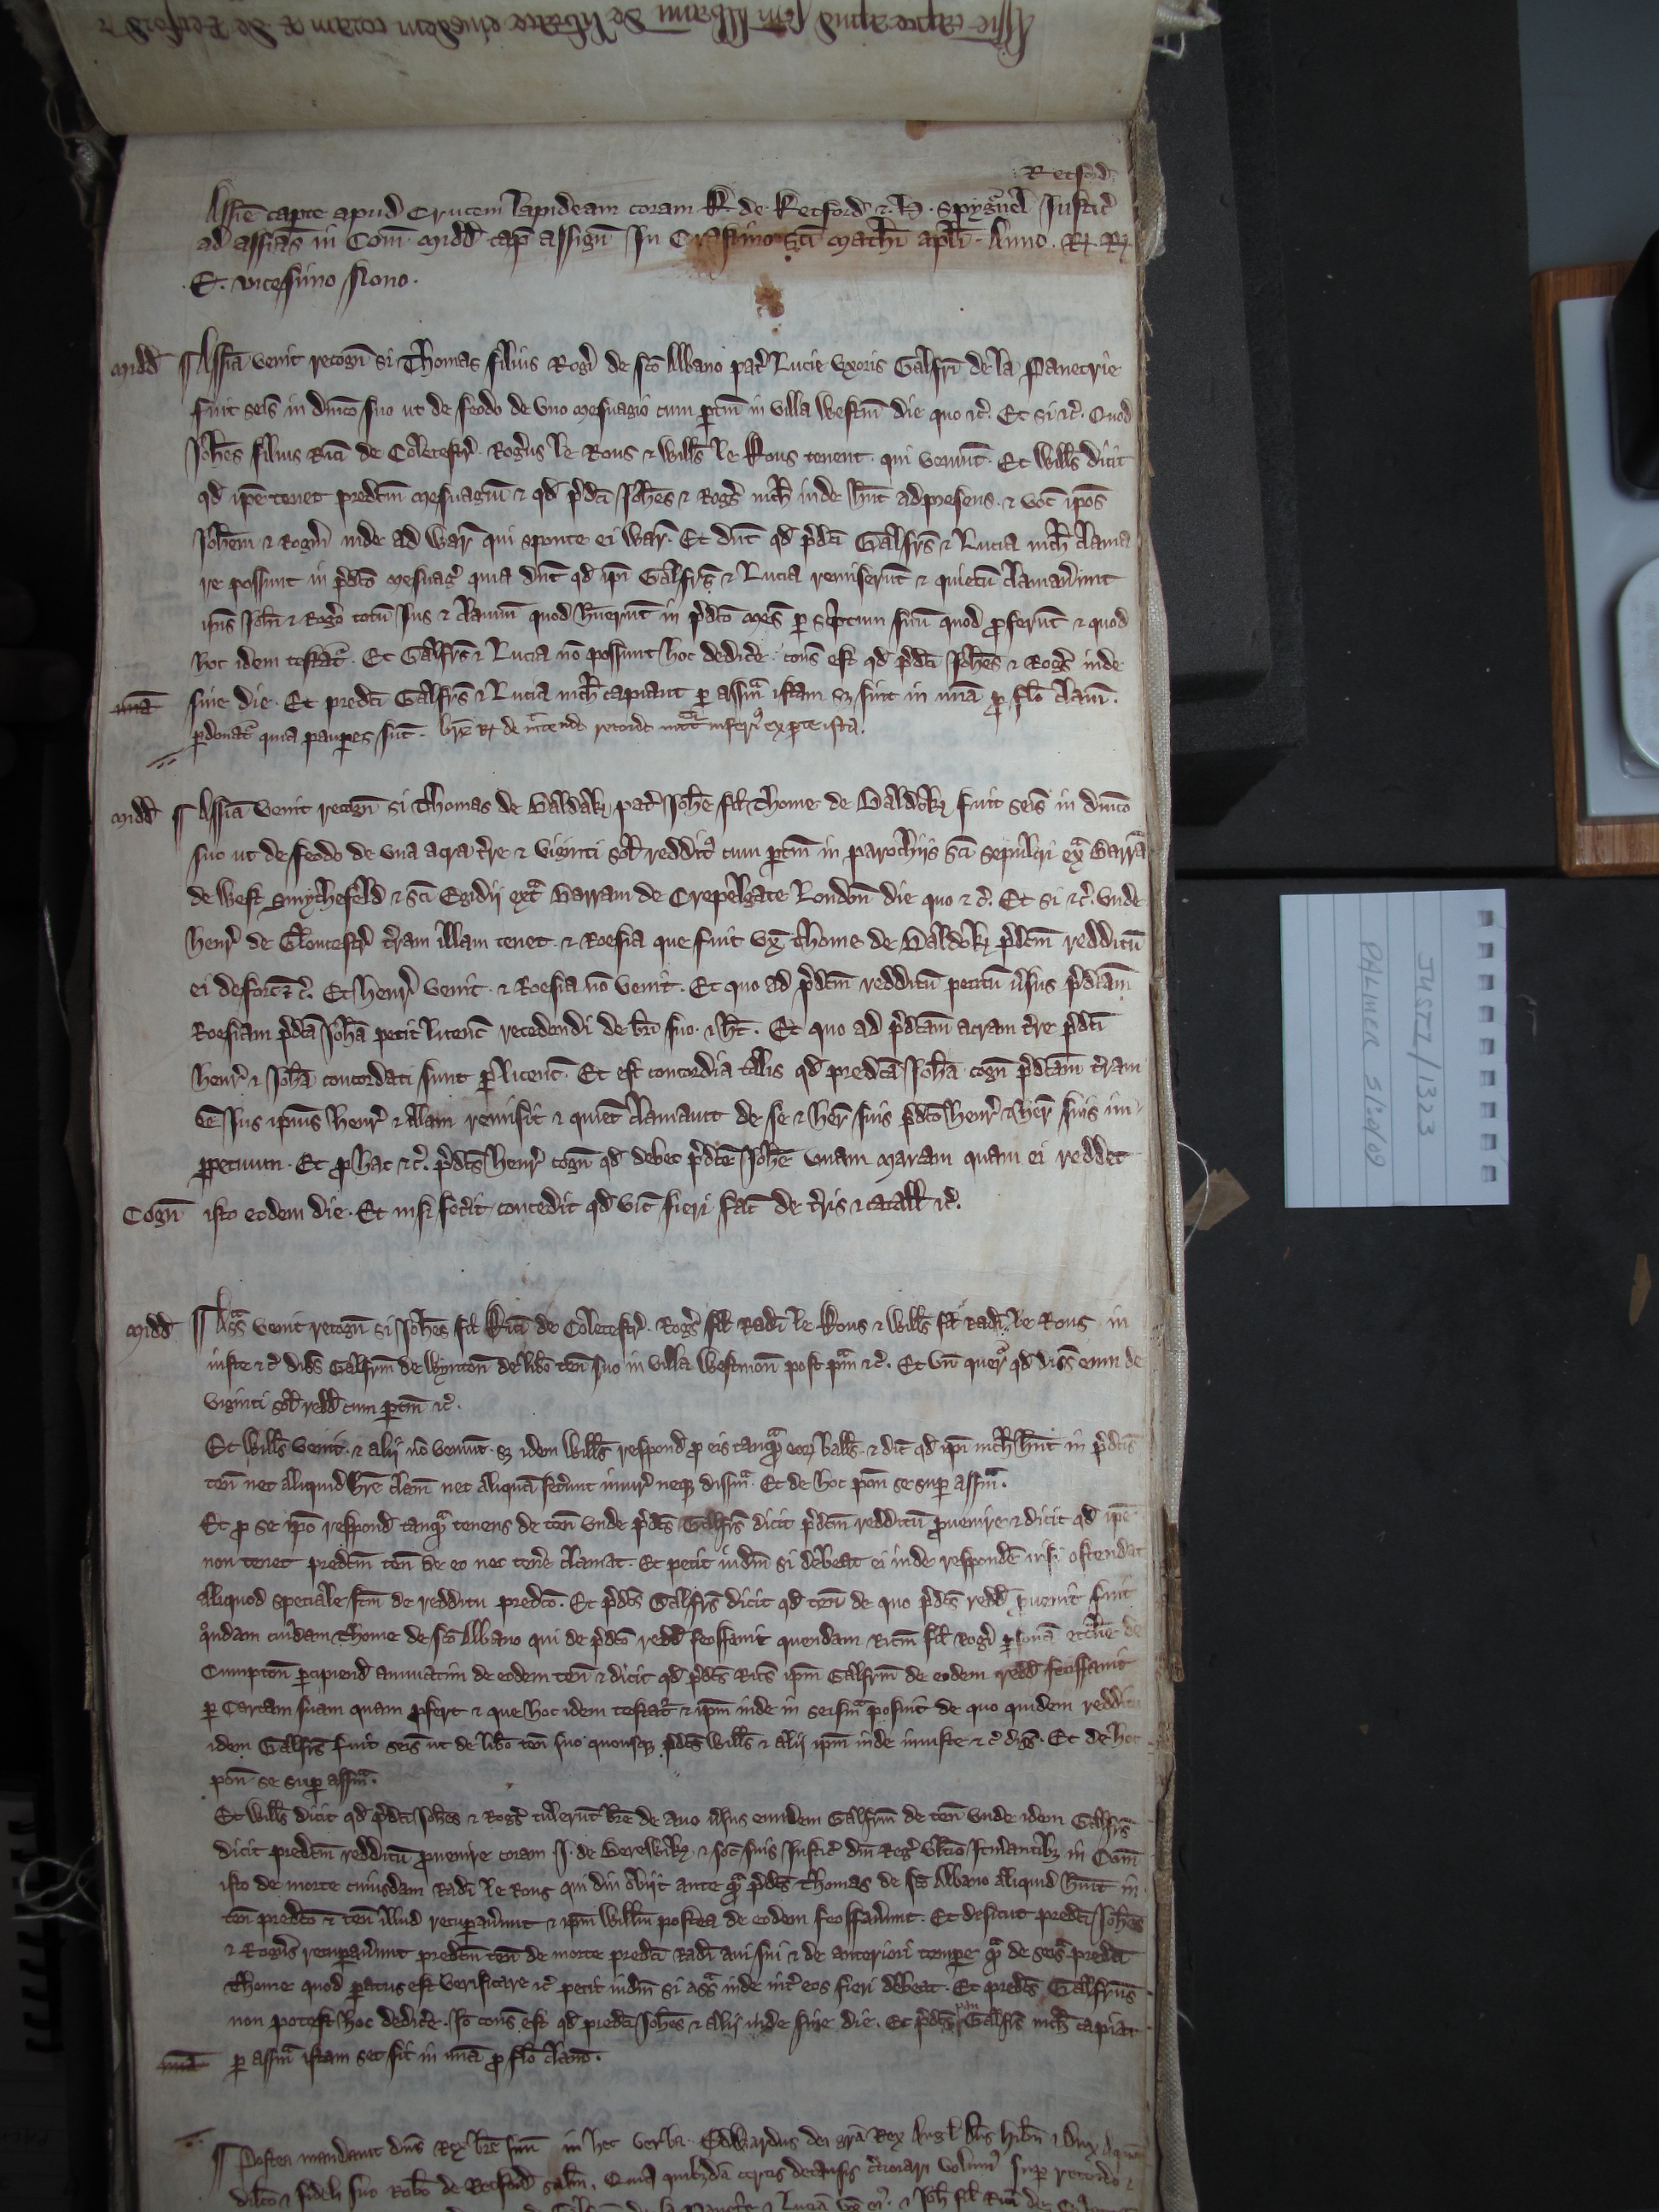 Assise capte apud sc̄m Albanum de libtate eiusdem coram R de Retford ⁊
Retford
Assīē capte apud Crucem lapideam coram R de Retford ⁊ H. Spygurnel Justic̄
ad assīas in Com̄ Midd̄ cap̄ assign̄ In Crastino Sc̄i Mathī apl̄i Anno R R
E. vicesimo Nono.
Midd̄ Assīa venit recogn̄ si Thomas filius Rogī de sc̄o Albano pat̄ Lucie Uxoris Galfrī de la Panetrie
fuit seis̄ in dn̄ico suo ut de feodo de Uno Mesuagio cum p̄tin̄ in villa Westm̄ die quo ⁊c̄. Et si ⁊c̄. Quod
Joh̄es filius Ric̄i de Colecestr̄ Rogus le Rous ⁊ Will̄s le Rous tenent qui veniunt. Et Will̄s dicit
qd̄ ip̄e tenet predc̄m Mesuagiū ⁊ qd̄ p̄dc̄i Joh̄es ⁊ Rogs̄ nich̄ inde hn̄t ad presens ⁊ voc̄ ip̄os
Joh̄em ⁊ Rogm̄ inde ad War̄ qui sponte ei War̄. Et dn̄t qd̄ p̄dc̄i Galfrs̄ ⁊ Lucia nich̄ clama
re possunt in p̄dc̄o Mesuaḡ quia dn̄t qd̄ ip̄i Galfrs̄ ⁊ Lucia remiserūt ⁊ quietū clamauunt
ip̄is Joh̄i ⁊ Rogo totū Jus ⁊ clamiū quod hūerunt in p̄dc̄o Mes̄ p̄ Sc̄ptum suū quod p̄ferūt ⁊ quod
hoc idem testat̄. Et Galfrs̄ ⁊ Lucia nō possunt hoc dedic̄e. Cons̄ est qd̄ p̄dc̄i Joh̄es ⁊ Rogs̄ inde
mīa sine die. Et predc̄i Galfrs̄ ⁊ Lucia nich̄ capiant p̄ assīam istam sȝ sint in mīa p̄ flō clam̄.
p̄donat̄ quia paup̄es sūt. br̄e R de mittendo recordo
Midd̄ Assīa venit recogn̄ si Thomas de Baldoky pat̄ Joh̄e fil̄ Thome de Baldoky fuit seis̄ in dn̄ico
suo ut de feodo de Una acra t̄re ⁊ Viginti sol̄ redditus cum p̄tin̄ in parochiis Sc̄i Sepulcri ext̄ Barrā
de West Smythefeld ⁊ Sc̄i Egidij ext̄ Barram de Crepelgate London̄ die quo ⁊c̄. Et si ⁊c̄. Unde
Henr̄ de Gloucestr̄ t̄ram illam tenet ⁊ Roesia que fuit ux̄ Thome de Baldoky p̄dc̄m redditū
ei deforc̄ ⁊c̄. Et Henr̄ venit ⁊ Roesia nō venit. Et quo ad p̄dc̄m redditū petitū v̄sus p̄dc̄am
Roesiam p̄dc̄a Joh̄a petit licenc̄ recedendi de br̄i suo ⁊ h̄t. Et quo ad p̄dc̄am acram t̄re p̄dc̄i
Henr̄ ⁊ Joh̄a concordati sunt p̄ licenc̄. Et est concordia talis qd̄ predc̄a Joh̄a cogn̄ p̄dc̄am t̄ram
ēē Jus ip̄ius Henr̄ ⁊ illam remisit ⁊ quiet̄ clamauit de se ⁊ her̄ suis p̄dc̄o Henr̄ ⁊ her̄ suis im
p̄petuum. Et p̄ hac ⁊c̄. p̄dc̄s Henr̄ cogn̄ qd̄ debet p̄dc̄e Joh̄e Unam Marcam quam ei reddet
Cogn̄ isto eodem die. Et nisi fec̄it concedit qd̄ vic̄ fieri fac̄ de t̄ris ⁊ catall̄ ⁊c̄.
Midd̄ Ass̄a venit recogn̄ si Joh̄es fil̄ Ric̄i de Colecestr̄ Rogs̄ fil̄ Radī le Rous ⁊ Will̄s fil̄ Radī le Rous in
iuste ⁊c̄ diss̄ Galfrm̄ de Wynton̄ de libo ten̄ suo in villa Westmon̄ post p̄m ⁊c̄. Et Un̄ quer̄ qd̄ diss̄ eum de
viginti sol̄ redd̄ cum p̄tin̄ ⁊c̄.
Et Will̄s venit ⁊ alij nō veniunt sȝ idem Will̄s respond̄ p̄ eis tanq̄m eoȝ ball̄s ⁊ dic̄ qd̄ ip̄i nich̄ hn̄t in p̄dc̄is
ten̄ nec aliquid hr̄e clam̄ nec aliquā fec̄unt iniur̄ neqȝ diss̄īam. Et de hoc pon̄ se sup̄ assīam.
Et p̄ se ip̄o respond̄ tanq̄m tenens de ten̄ unde p̄dc̄s Galfrs̄ dicit p̄dc̄m redditū p̄uenire ⁊ dicit qd̄ ip̄e
non tenet predc̄m ten̄ de eo nec tene clamat. Et petit iudm̄ si debeat ei inde respondē nisi ostendat
aliquod speciale fc̄m de redditu predc̄o. Et p̄dc̄s Galfrs̄ dicit qd̄ ten̄ de quo p̄dc̄s redd̄ p̄uenit fuit
q̄ndam cuiūdam Thome de sc̄o Albano qui de p̄dc̄o redd̄ feoffauit quendam Ric̄m fil̄ Rogī p̄sonā eccl̄ie de
Cumpton̄ p̄cipiend̄ annuatim de eodem ten̄ ⁊ dicit qd̄ p̄dc̄s Ric̄s ip̄m Galfrm̄ de eodem redd̄ feoffauit
p̄ Cartam suam quam p̄fert ⁊ que hoc idem testat̄ ⁊ ip̄m inde in seis̄īam posuit de quo quidem redditu
idem Galfrs̄ fuit seis̄ ut de libo ten̄ suo quousqȝ p̄dc̄s Will̄s ⁊ alij ip̄m inde iniuste ⁊c̄ diss̄. Et de hoc
pon̄ se sup̄ assīam.
Et Will̄s dicit qd̄ p̄dc̄i Joh̄es ⁊ Rogs̄ tulerūt br̄e de auo v̄sus eundem Galfrm̄ de ten̄ unde idem Galfrs̄
dicit predc̄m redditū p̄uenire coram J. de Berewiky ⁊ soc̄ suis Justic̄ dn̄i Reḡ ultīo Itin̄antibȝ in Com̄
isto de morte cuiusdam Radī le Rous qui diu obijt ante q̄m p̄dc̄s Thomas de sc̄o Albano aliquid hūit in
ten̄ predc̄o ⁊ ten̄ illud recup̄auunt ⁊ ip̄m Will̄m postea de eodem feoffauunt. Et desicut predc̄i Joh̄es
⁊ Rogus recup̄auunt predc̄m ten̄ de morte predc̄i Radī aui sui ⁊ de anteriori temp̄e q̄m de seis̄ predc̄i
Thome quod p̄atus est verificare ⁊c̄ petit iudm̄ si ass̄a inde int̄ eos fieri debeat. Et predc̄s Galfrūs
non potest hoc dedic̄e. Jō cons̄ est qd̄ predc̄i Joh̄es ⁊ alij inde sine die. Et p̄dc̄s Galfrs̄ nich̄ capiat
mīa p̄ assīam istam set sit in mīa p̄ flō clam̄.
Postea mandauit dn̄s Rex br̄e suū in hec verba. Edwardus dei grā Rex Angl̄ dn̄s Hib̄n ⁊ dux Aquit̄
dilc̄o ⁊ fideli suo Rob̄o de Retford sal̄m. Quia quibȝdā certis de causis c̄tiorari volum̄ sup̄ recordo ⁊
JUST 1/1323
PALMER 31/10/09